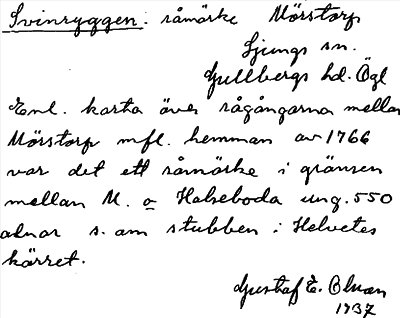 Svinryggen: råmärke Mörstorp
Ljungs sn.
Gullbergs hd. Ögl
Enl. karta över rågångarna mellan
Mörstorp mfl. hemman av 1766
var det ett råmärke i gränsen
mellan M. o Halseboda ung. 550
alnar s. om stubben i Helvetes
kärret.
Gustaf E. Olman
1937